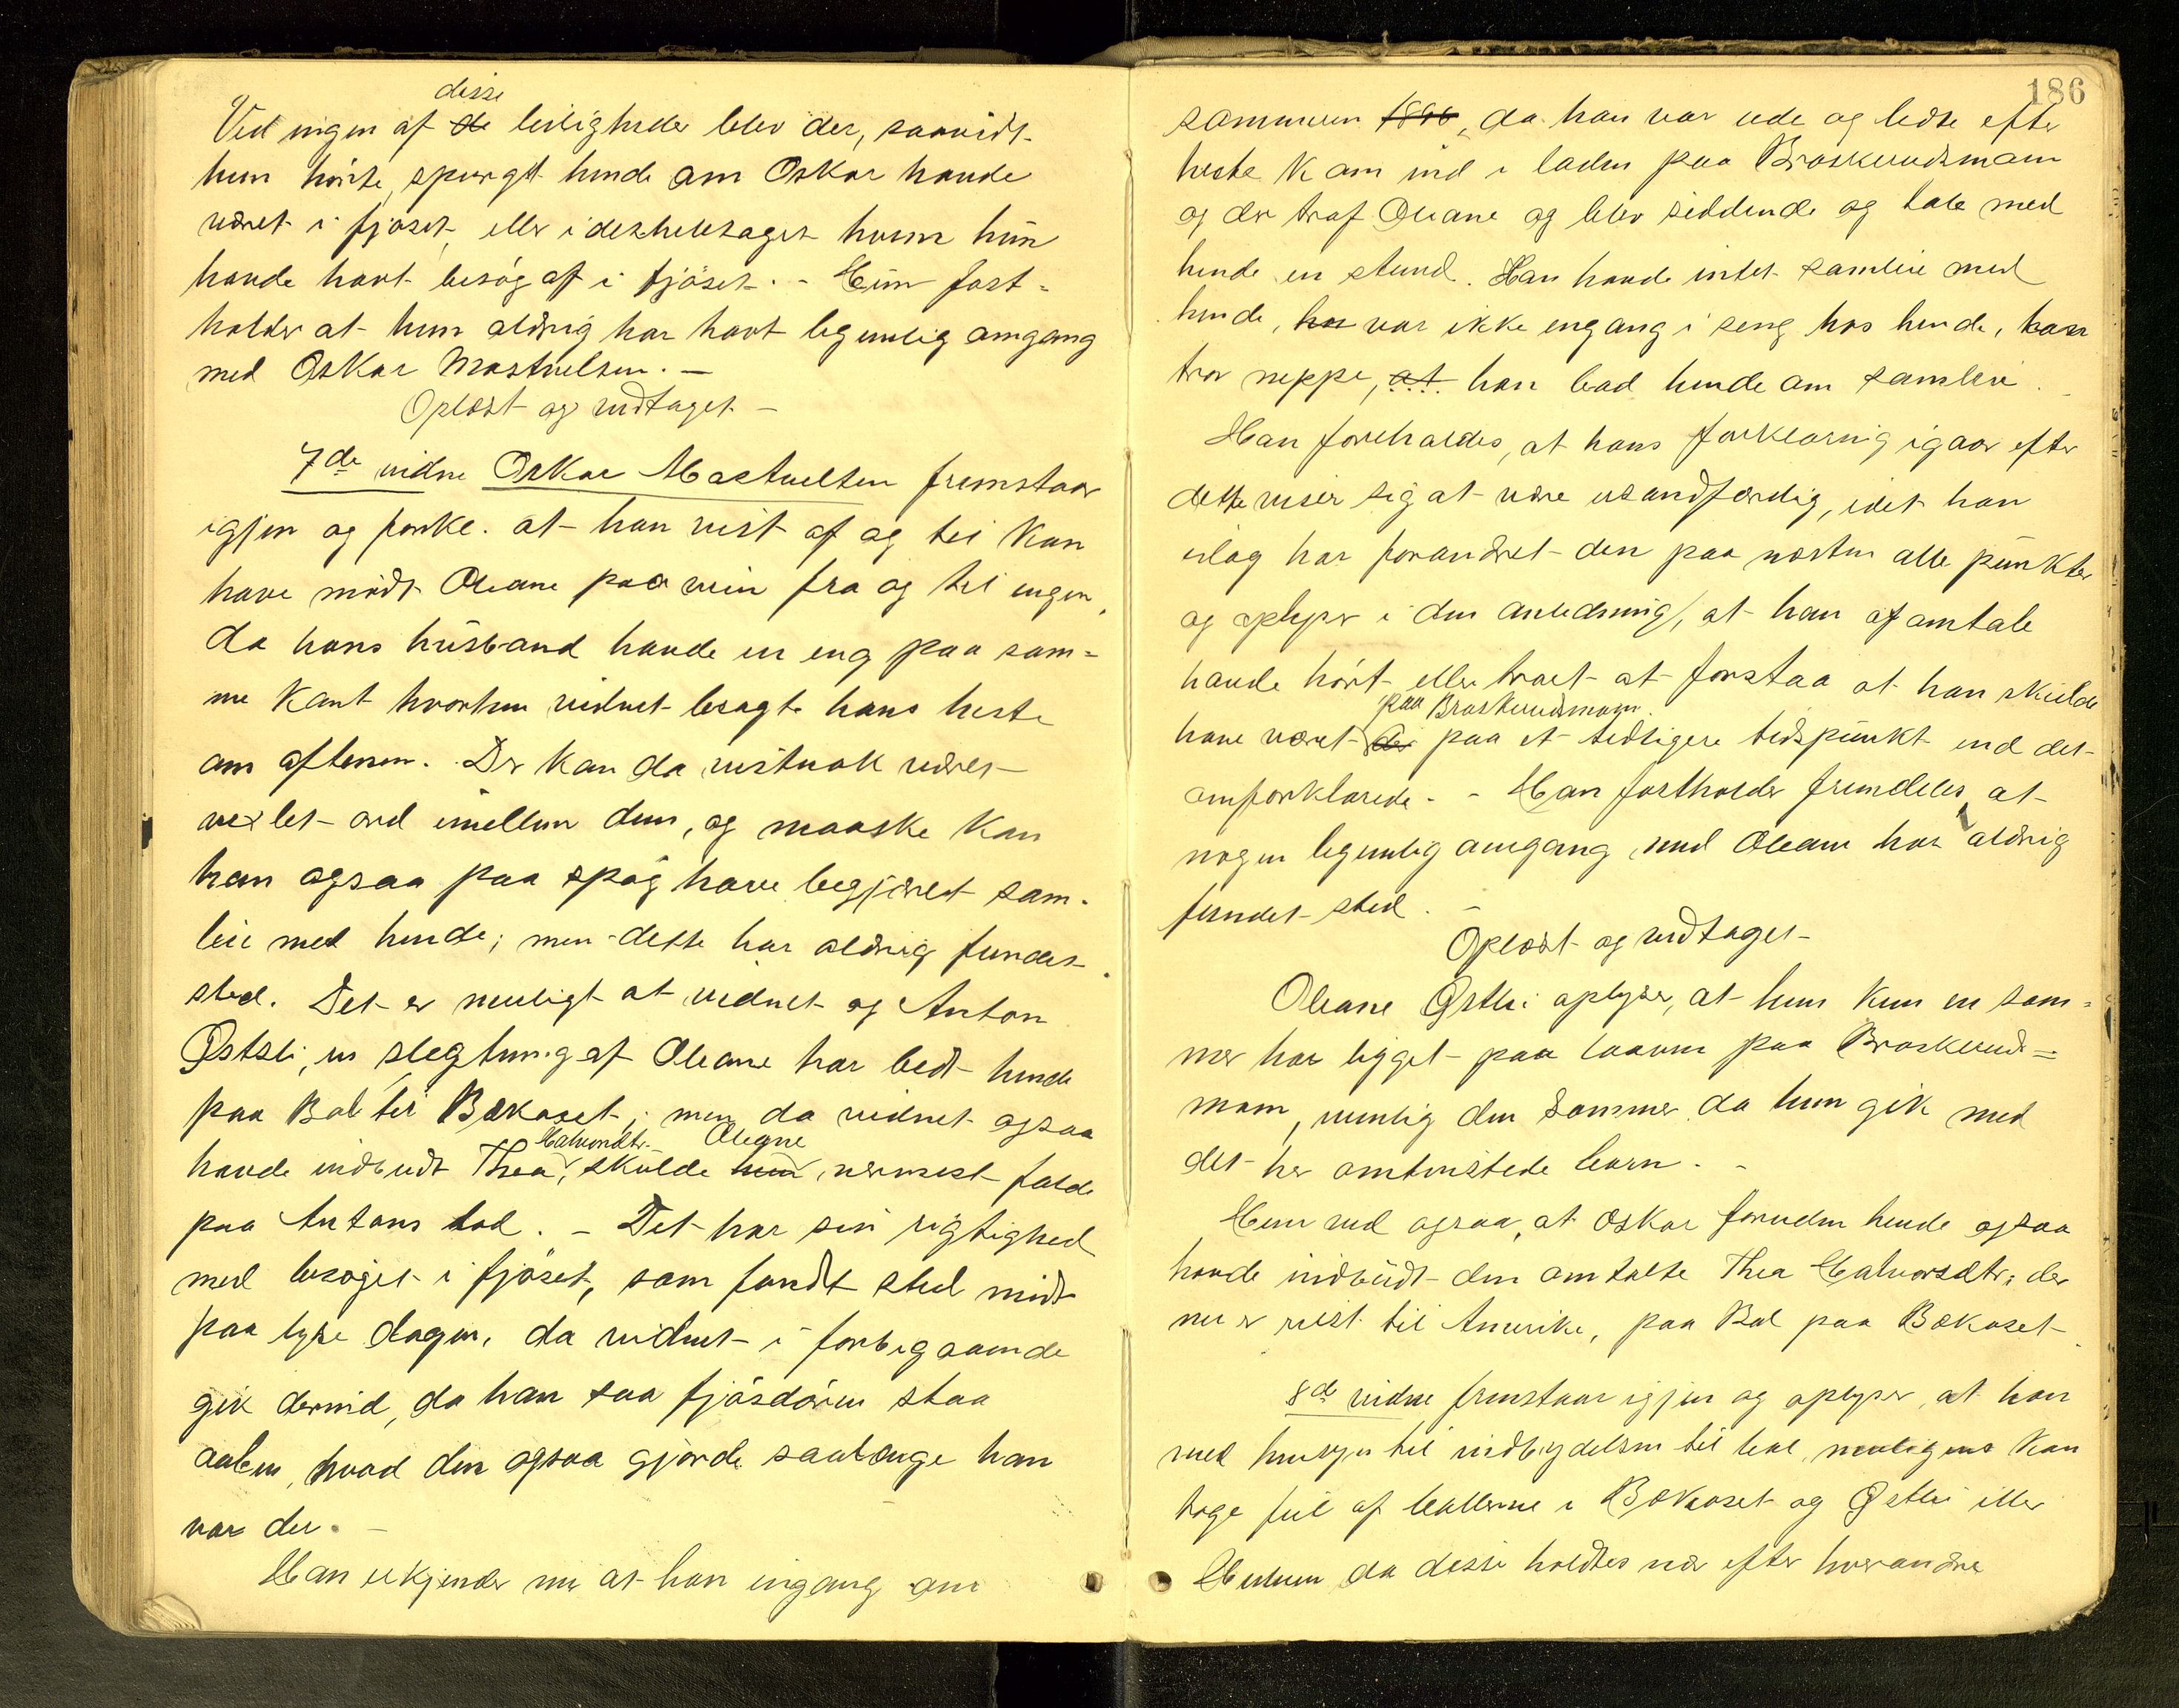 disse
Ved ingen af de leiligheder blev der, saavidt
hun hørte, spurgt hende om Oskar havde
været i fjøset, eller i deshelestaget hvem hun
havde havt besøg af i fjøset. - Hun fast-
holder at hun aldrig har havt legemlig omgang
med Oskar Mastuelsen. -
Oplæst og vedtaget -
7de vidne Oskar Mastuelsen fremstaar
igjen og forkl. at han vist af og til kan
have mødt Oleane paa vein fra og til engen,
da hans husband havde en eng paa sam-
me kant hvorhen vidnet bragte hans heste
om aftenen. Der kan da vistnok været
vexlet ord imellem dem, og maaske kan
han ogsaa paa spøg have begjæret sam-
leie med hende; men dette har aldrig fundet
sted. Det er muligt at vidnet og Anton
Østsli, en slegtning af Oleane har bedt hende
paa Bal til Bækaset; men da vidnet ogsaa
Halvorsdtr. Oleane
havde indbudt Thea, skulde hun nærmest falde
paa Antons lod. - Det har sin rigtighed
med besøget i fjøset, som fandt sted midt
paa lyse dagen, da vidnet i forbigaaende
gik derind, da han saa fjøsdøren staa
aaben, hvad den ogsaa gjorde saalænge han
var der. -
Han erkjender nu at han engang om
186
sommeren 1896, da han var ude og ledte efter
heste kom ind i laden paa Braskerudsmoen
og der traf Oleane og blev siddende og tale med
hende en stund. Han havde intet samleie med
hende, han var ikke engang i seng hos hende, han
tror neppe, at han bad hende om samleie.
Han foreholdes, at hans forklaring igaar efter
dette viser sig at være usandfærdig, idet han
idag har forandret den paa næsten alle punkter
og oplyser i den anledning, at han af omtale
havde hørt eller troet at forstaa at han skulde
paa Braskerudsmoen
have været der paa et tidligere tidspunkt end det
omforklarede. - Han fastholder fremdeles, at
nogen legemlig omgang med Oleane har aldrig
fundet sted. -
Oplæst og vedtaget -
Oleane Østli oplyser, at hun kun en som-
mer har ligget paa laaven paa Braskerud-
moen, nemlig den Sommer da hun gik med
det her omtvistede barn. -
Hun ved ogsaa, at Oskar foruden hende ogsaa
havde indbudt den omtalte Thea Halvorsdtr., der
nu er reist til Amerika, paa Bal paa Bækaset.
8de vidne fremstaar igjen og oplyser, at han
med hensyn til indbydelsen til bal muligens kan
tage feil af ballerne i Bækaset og Østli eller
da disse holdtes nær efter hverandre